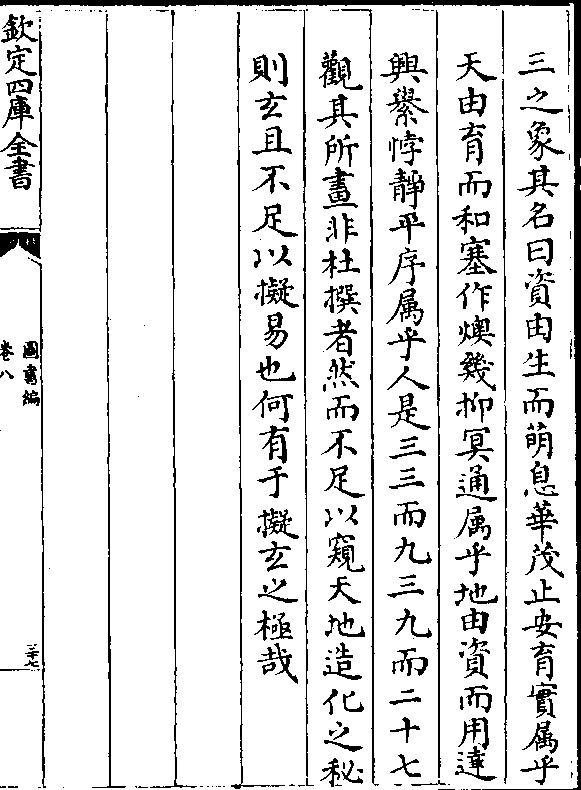 三之象其名曰資由生而萌息華茂止安育實属乎
天由育而和塞作煥㡬抑冥通属乎地由資而用達
興縈悖靜平序属乎人是三三而九三九而二十七
觀其所畫非杜撰者然而不足以窺天地造化之秘
則玄且不足以擬易也何有于擬玄之極哉
欽定四庫全書
圖書編
卷八
三十七